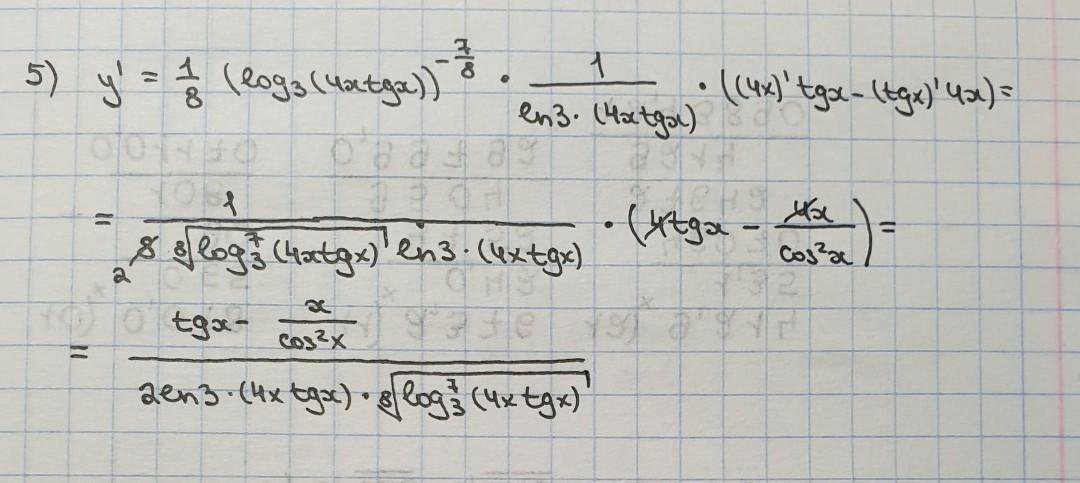 5) y' = 1/8 (log₃(4xtgx))^(-7/8) · 1/(ln3·(4xtgx)) · ((4x)'tgx-(tgx)'4x)=
= 1/(8 ⁸√(log₃⁷(4xtgx)) ln3·(4xtgx)) · (4tgx - 4x/cos²x)=
2
= (tgx - x/cos²x)/(2ln3·(4xtgx)·⁸√(log₃⁷(4xtgx)))